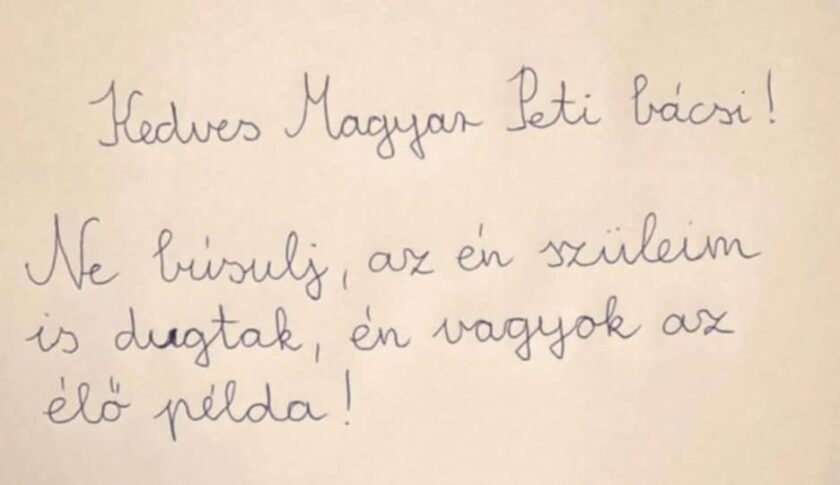 Kedves Magyar Peti bácsi!
Ne búsulj, az én szüleim
is dugtak, én vagyok az
élő példa!